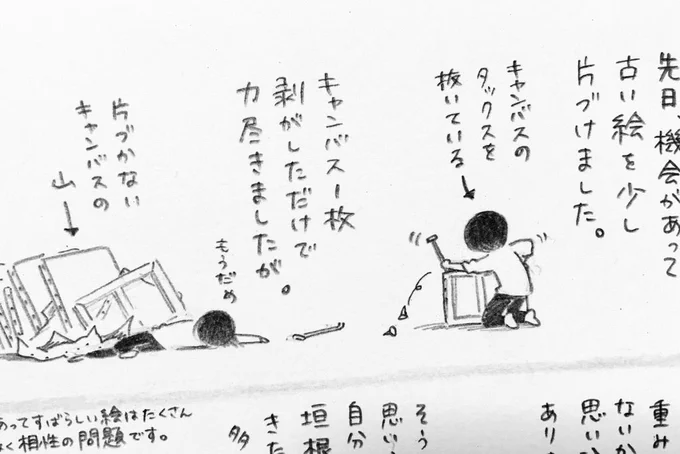 先日、機会があって
古い絵を少し
片づけました。
キャンバスの
タックスを
抜いている
キャンバス1枚
剥がしただけで
力尽きましたが。
もうだめ
片づかない
キャンバスの
山
重み
ないか
思いか
あり
そう
思い
自分
垣根
きた
多
あってすばらしい絵はたくさん
なく相性の問題です。